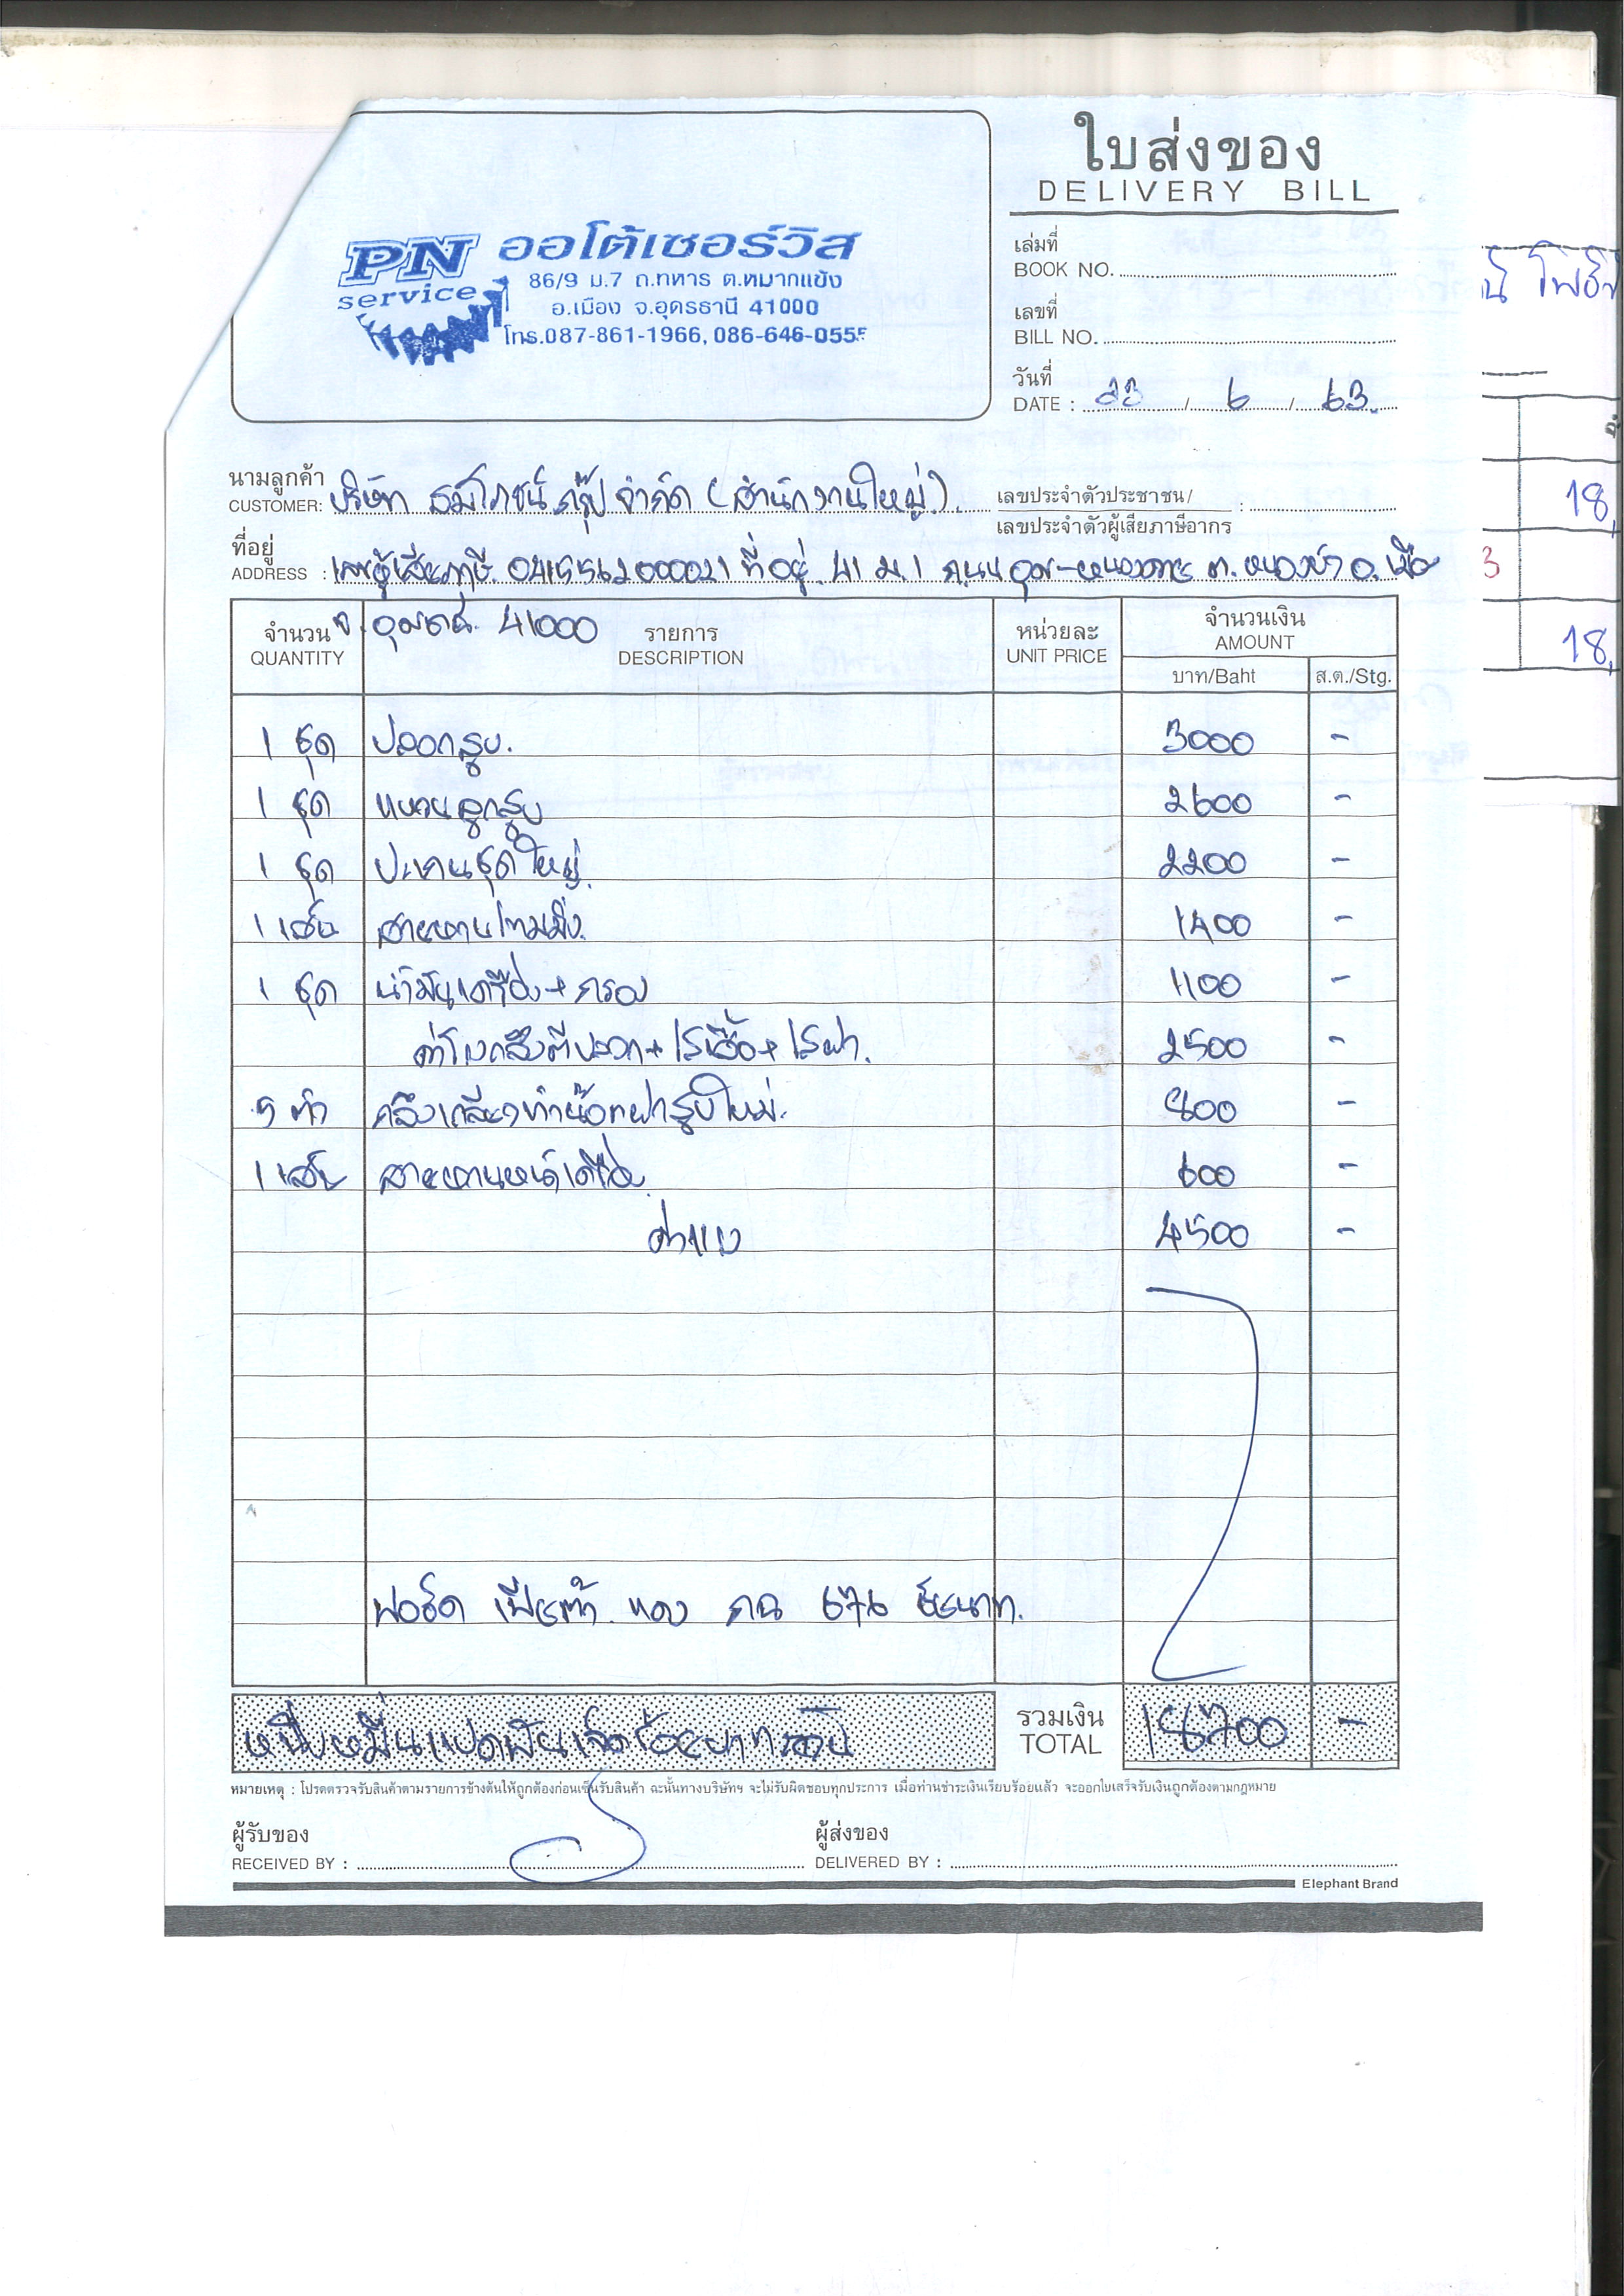 ใบส่งของ
DELIVERY BILL
PN service
ออโต้เซอร์วิส
86/9 ม.7 ถ.ทหาร ต.หมากแข้ง
อ.เมือง จ.อุดรธานี 41000
โทร.087-861-1966, 086-646-0555
เล่มที่
BOOK NO.
เลขที่
BILL NO.
วันที่
DATE : 23 / 6 / 63.
นามลูกค้า
CUSTOMER: บริษัท ธมโภชน์ กรุ๊ป จำกัด (สำนักงานใหญ่).
เลขประจำตัวประชาชน/ :
เลขประจำตัวผู้เสียภาษีอากร
ที่อยู่
ADDRESS : เลขผู้เสียภาษี. 0415562000021 ที่อยู่. 41 ม.1 ถนน อุดร-หนองคาย ต. หนองบัว อ. เมือง
จ. อุดรธานี. 41000
จำนวน รายการ หน่วยละ จำนวนเงิน
QUANTITY DESCRIPTION UNIT PRICE AMOUNT
บาท/Baht ส.ต./Stg.
1 ชุด ปลอกสูบ. 3000 -
1 ชุด แหวนลูกสูบ 2600 -
1 ชุด ปะเก็นชุดใหญ่. 2200 -
1 เส้น สายพานไทมมิ่ง. 1400 -
1 ชุด น้ำมันเครื่อง + กรอง 1100 -
ค่าโรงกลึงตีปลอก + ไสเสื้อ + ไสฝา. 2500 -
5 ตัว กลึงเกลียวทำน็อตฝาสูบใหม่. 900 -
1 เส้น สายพานหน้าเครื่อง. 600 -
ค่าแรง 4500 -
ฟอร์ด เฟียสต้า แดง กฉ 676 ชัยนาท.
หนึ่งหมื่นแปดพันเจ็ดร้อยบาทถ้วน
รวมเงิน
TOTAL 18700 -
หมายเหตุ : โปรดตรวจรับสินค้าตามรายการข้างต้นให้ถูกต้องก่อนเซ็นรับสินค้า ฉะนั้นทางบริษัทฯ จะไม่รับผิดชอบทุกประการ เมื่อท่านชำระเงินเรียบร้อยแล้ว จะออกใบเสร็จรับเงินถูกต้องตามกฎหมาย
ผู้รับของ
RECEIVED BY :
ผู้ส่งของ
DELIVERED BY :
Elephant Brand
18,
3
18,